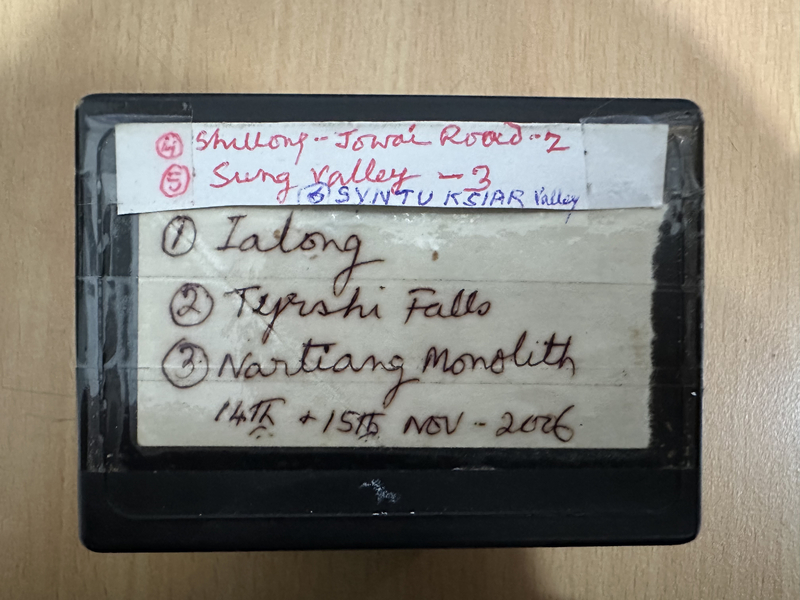 ④ Shillong - Jowai Road - 2
⑤ Sung Valley - 3
⑥ SYNTU KSIAR Valley
① Ialong
② Tyrshi Falls
③ Nartiang Monolith
14th + 15th NOV - 2006